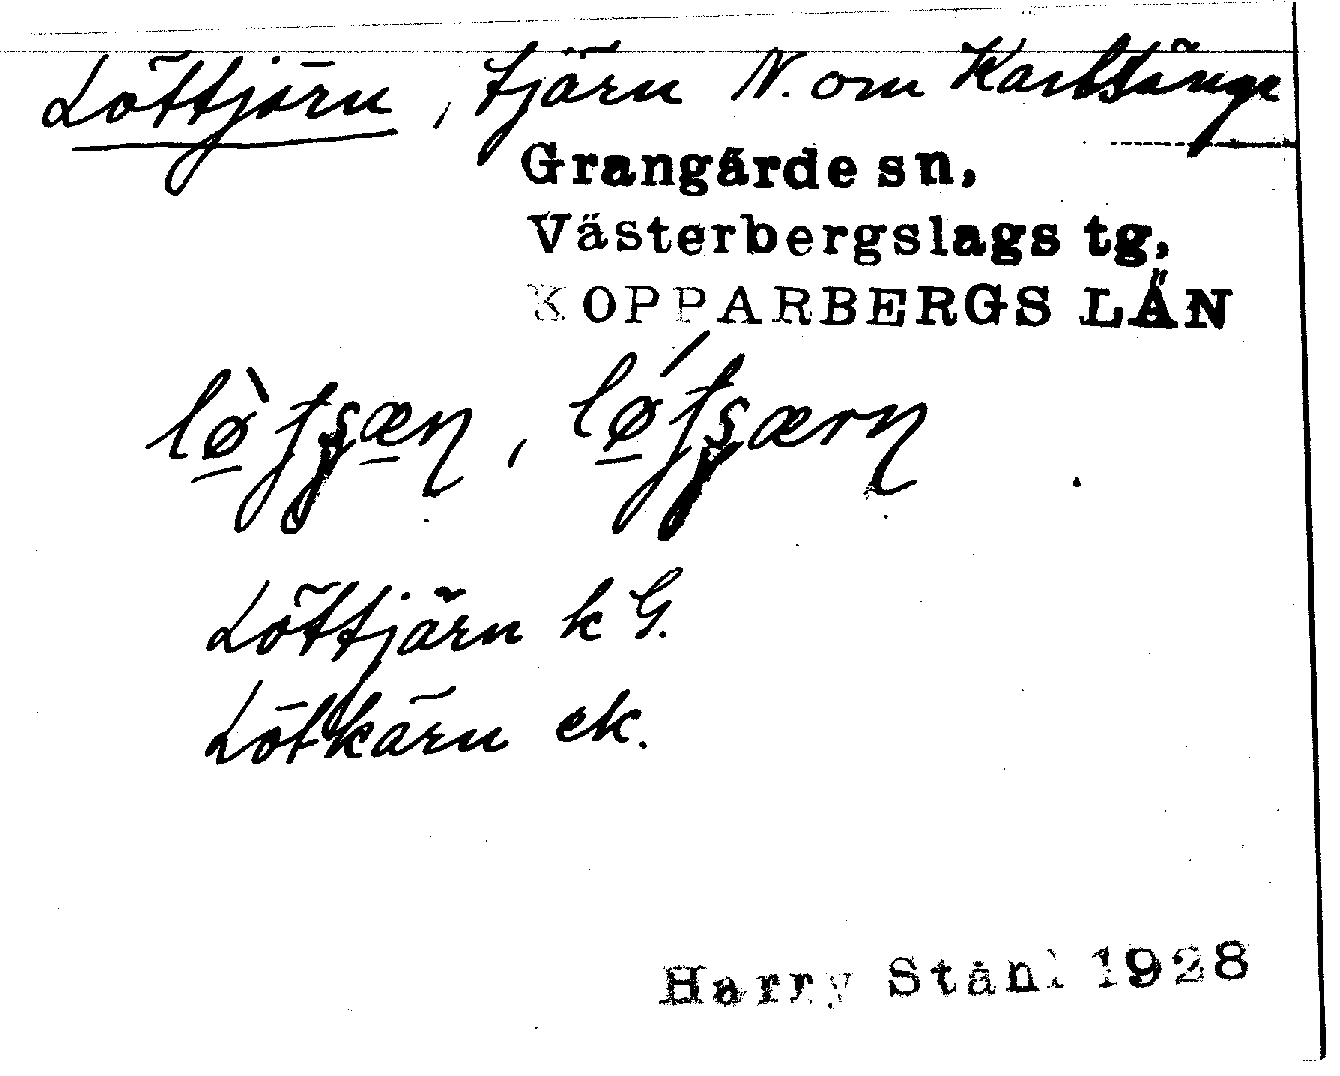 Löttjärn, tjärn N. om Karlsänge
Grangärde sn,
Västerbergslags tg,
KOPPARBERGS LÄN
Löttjärn k G.
Lötkärn ek.
Harry Ståhl 1928